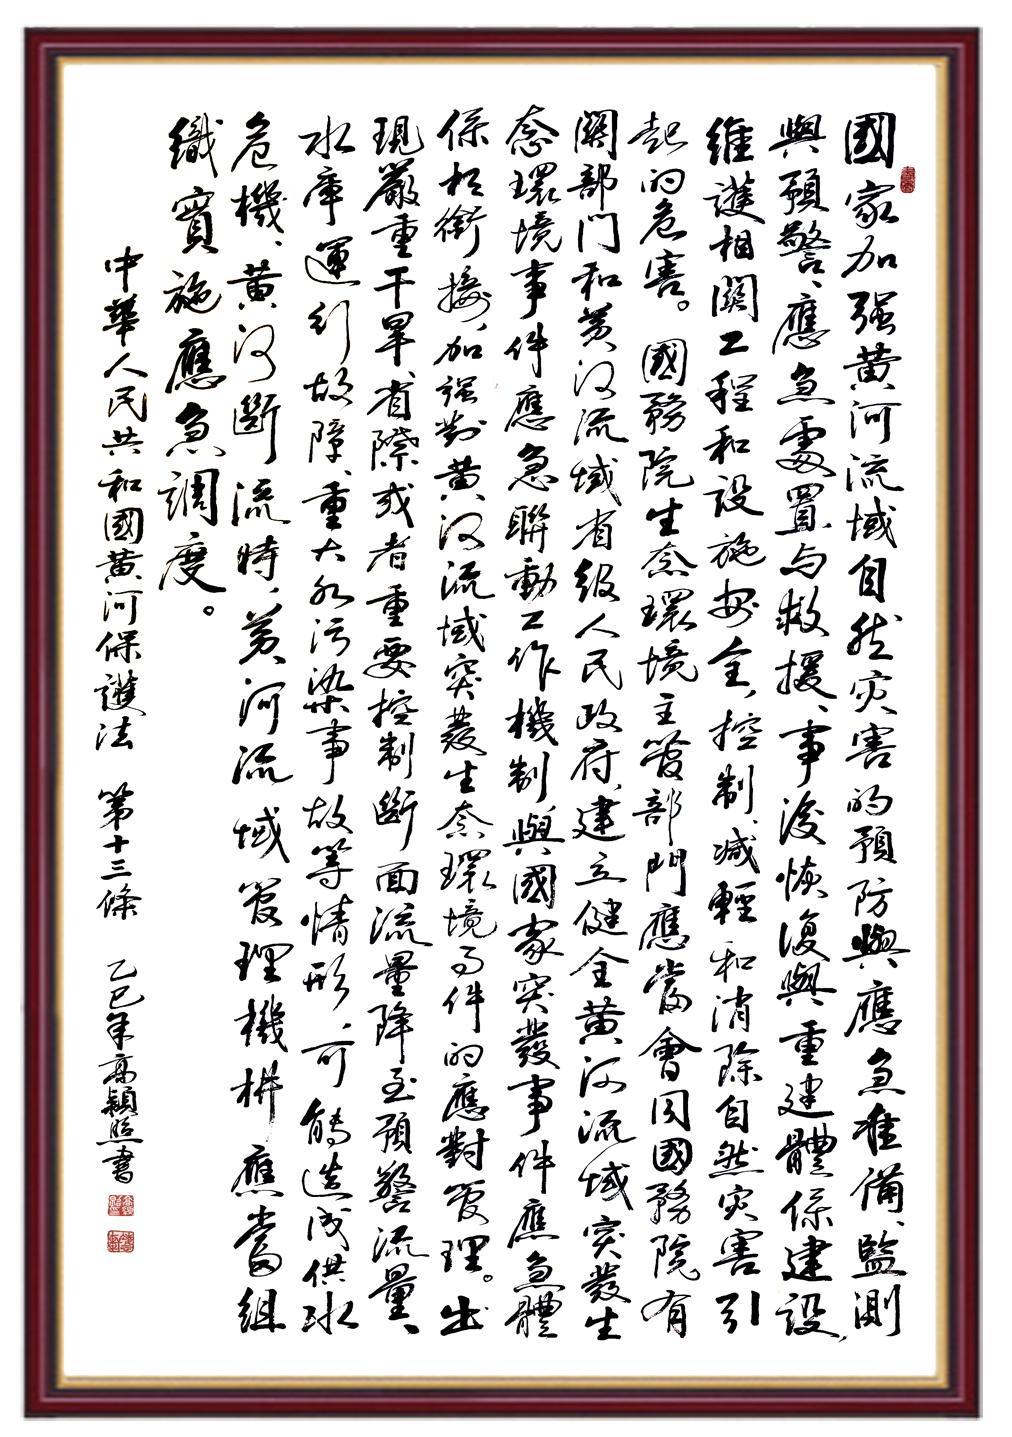 國家加强黄河流域自然灾害的預防與應急准備、監測
與預警、應急處置与救援、事後恢復與重建體係建設，
維護相關工程和設施安全，控制、减輕和消除自然灾害引
起的危害。國務院生态環境主管部門應當會同國務院有
關部门和黄河流域省級人民政府，建立健全黄河流域突發生
态環境事件應急聯動工作機制，與國家突發事件應急體
係相銜接，加强對黄河流域突發生态環境事件的應對管理。出
現嚴重干旱、省際或者重要控制斷面流量降至預警流量、
水庫運行故障、重大水污染事故等情形，可能造成供水
危機、黄河斷流時，黄河流域管理機構應當組
織實施應急調度。
中華人民共和國黄河保護法 第十三條 乙巳年高穎照書